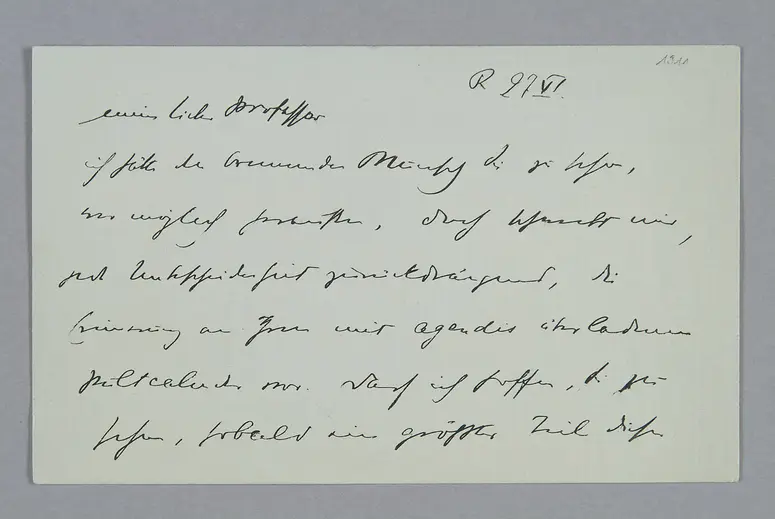 1911
R 27 VI.
mein lieber Professor
ich hätte den brennenden Wunsch Sie zu sehen,
wo möglich, doch schwebt mir,
jede Entschiedenheit zurückdrängend, die
Erinnerung an Ihren mit agendis überladenen
Pultcalender vor. Darf ich hoffen, Sie zu
sehen, sobald ein größter Teil dieser